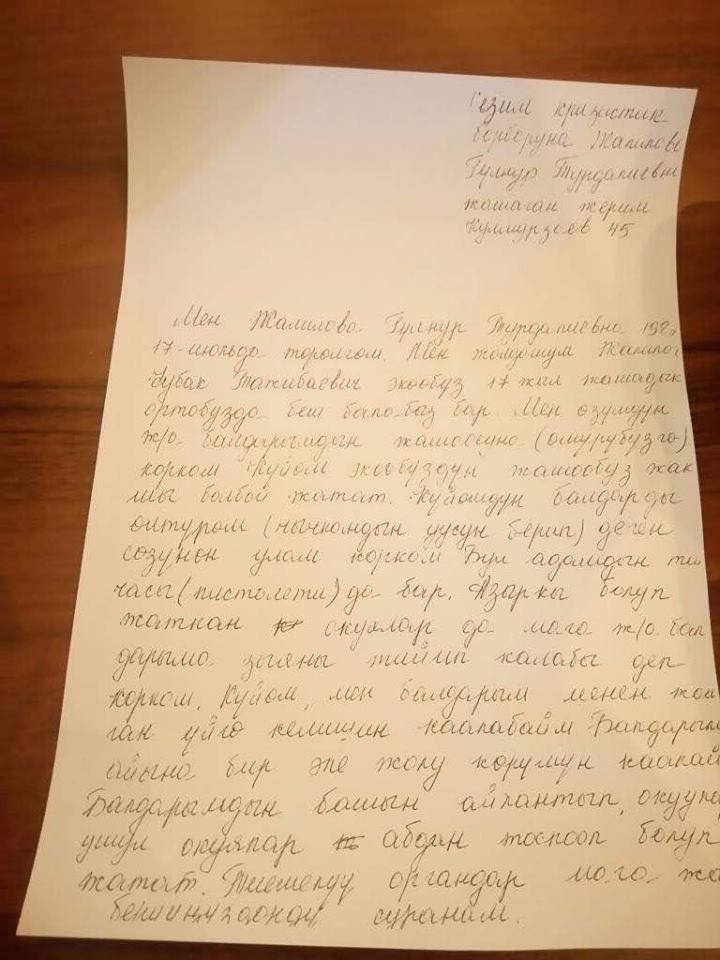 Сезим кризистик
борборуна Жалилова
Гулнур Турдалиевна
жашаган жерим
Кулмурзаев 45
Мен Жалилова Гулнур Турдалиевна 198
17-июльда торолгом. Мен жолдошум Жалило
Чубак Тажибаевич экообуз 17 жыл жашадык
ортобузда беш бала-быз бар. Мен озумдун
ж/а балдарымдын жашоосуна (омурубузго)
корком Куйом экообуздун жашообуз жак
шы болбой жатат. Куйомдун балдарды
олтуром (чычкандын уусун берип) деген
созунон улам корком Бул адамдын та
часы (пистолети) да бар. Азыркы болуп
жаткан окуялар да мага ж/а бал
дарыма зыяны тийип калабы деп
корком. Куйом, мен балдарым менен жаш
ган уйго келишин каалабайм Балдарым
айына бир эле жолу корушун каалай
Балдарымдын башын айлантып, окууна
ушул окуялар абдан тоскоол болуп
жатат. Тиешелуу органдар мага жа
суранам.